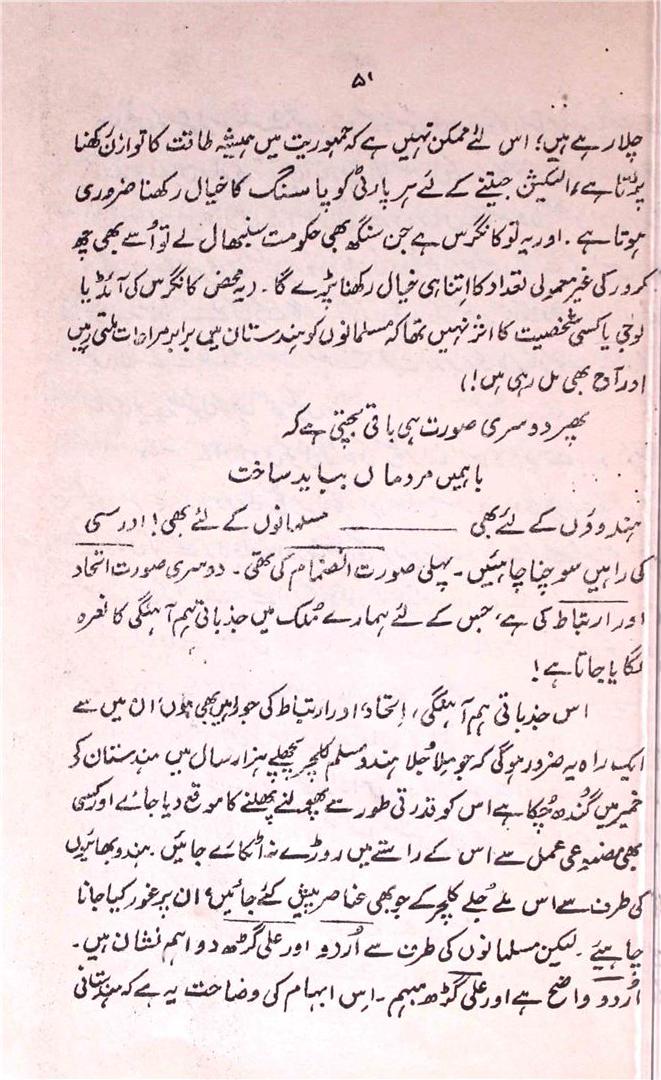 ۵۱
چلا رہے ہیں؛ اس لئے ممکن نہیں ہے کہ جمہوریت میں ہمیشہ طاقت کا توازن رکھنا
پڑتا ہے، الیکشن جیتنے کے لئے ہر پارٹی کو پاسنگ کا خیال رکھنا ضروری
ہوتا ہے۔ اور یہ تو کانگرس ہے جن سنگھ بھی حکومت سنبھال لے تو اُسے بھی چھ
کرور کی غیر معمولی تعداد کا اتنا ہی خیال رکھنا پڑے گا۔ (یہ محض کانگرس کی آئڈیا
لوجی یا کسی شخصیت کا اثر نہیں تھا کہ مسلمانوں کو ہندستان میں برابر مراعات ملتی رہیں
اور آج بھی مل رہی ہیں!)
پھر دوسری صورت ہی باقی بچتی ہے کہ
با ہمیں مردماں بباید ساخت
ہندوؤں کے لئے بھی ــــــــــ مسلمانوں کے لئے بھی! اور سی
کی راہیں سوچنا چاہئیں۔ پہلی صورت انضمام کی تھی۔ دوسری صورت اتحاد
اور ارتباط کی ہے، جس کے لئے ہمارے مُلک میں جذباتی ہم آہنگی کا نعرہ
لگایا جاتا ہے!
اس جذباتی ہم آہنگی، اِتحاد اور ارتباط کی جو راہیں بھی ہوں، ان میں سے
ایک راہ یہ ضرور ہوگی کہ جو مِلا جُلا ہندو مسلم کلچر پچھلے ہزار سال میں ہندستان کے
خمیر میں گُندھ چُکا ہے اس کو قدرتی طور سے پھولنے پھلنے کا موقع دیا جائے اور کسی
بھی مصنوعی عمل سے اس کے راستے میں روڑے نہ اٹکائے جائیں۔ ہندو بھائیوں
کی طرف سے اس ملے جُلے کلچر کے جو بھی عناصر پیش کئے جائیں، ان پر غور کیا جانا
چاہئیے۔ لیکن مسلمانوں کی طرف سے اُردو اور علی گڑھ دو اہم نشان ہیں۔
اُردو واضح ہے اور علی گڑھ مبہم۔ اِس ابہام کی وضاحت یہ ہے کہ ہندستانی